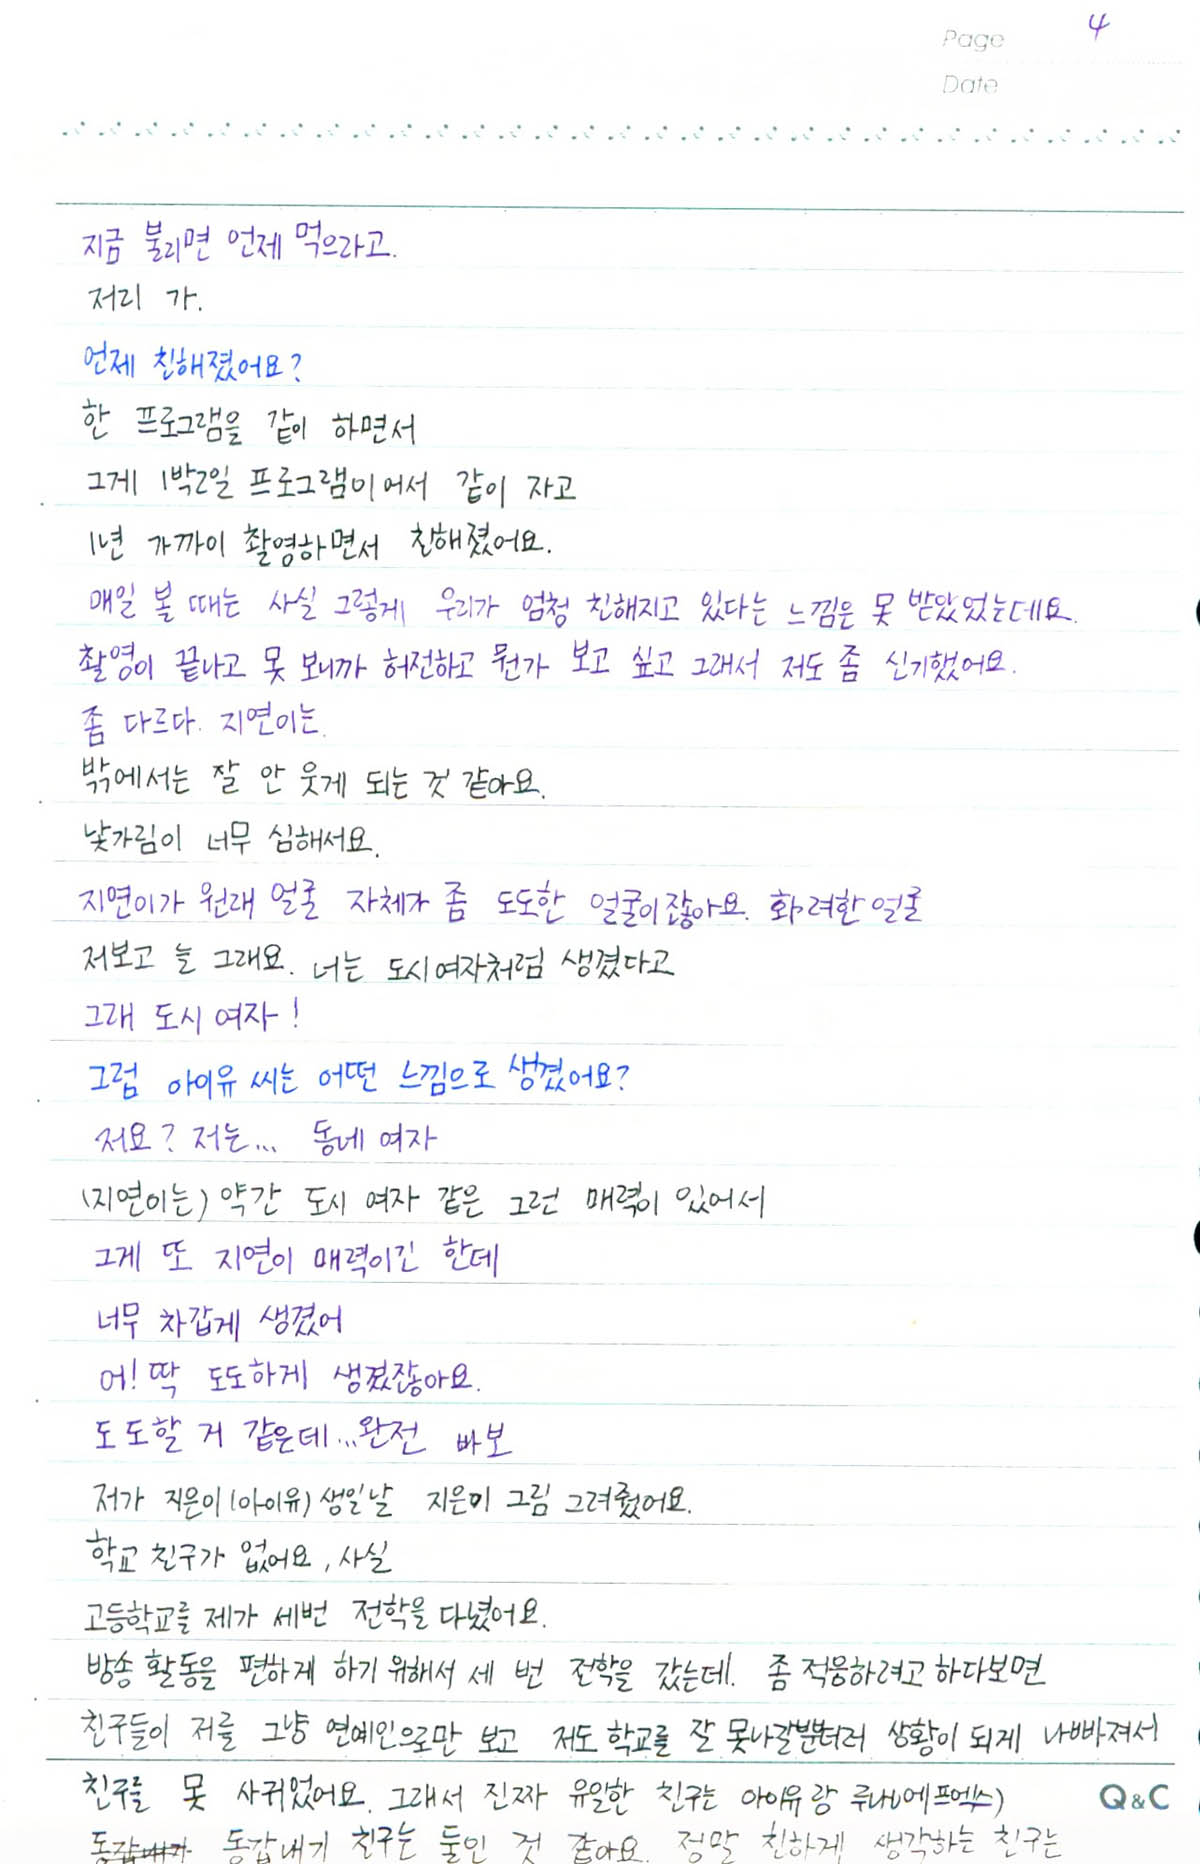 Page 4
Date
지금 불리면 언제 먹으라고.
저리 가.
언제 친해졌어요?
한 프로그램을 같이 하면서
그게 1박2일 프로그램이어서 같이 자고
1년 가까이 촬영하면서 친해졌어요.
매일 볼 때는 사실 그렇게 우리가 엄청 친해지고 있다는 느낌은 못 받았었는데요.
촬영이 끝나고 못 보니까 허전하고 뭔가 보고 싶고 그래서 저도 좀 신기했어요.
좀 다르다. 지연이는.
밖에서는 잘 안 웃게 되는 것 같아요.
낯가림이 너무 심해서요.
지연이가 원래 얼굴 자체가 좀 도도한 얼굴이잖아요. 화려한 얼굴
저보고 늘 그래요. 너는 도시여자처럼 생겼다고
그래 도시 여자!
그럼 아이유 씨는 어떤 느낌으로 생겼어요?
저요? 저는... 동네 여자
(지연이는) 약간 도시 여자 같은 그런 매력이 있어서
그게 또 지연이 매력이긴 한데
너무 차갑게 생겼어
어! 딱 도도하게 생겼잖아요.
도도할 거 같은데...완전 바보
저가 지은이(아이유) 생일날 지은이 그림 그려줬어요.
학교 친구가 없어요, 사실
고등학교를 제가 세번 전학을 다녔어요.
방송 활동을 편하게 하기 위해서 세 번 전학을 갔는데. 좀 적응하려고 하다보면
친구들이 저를 그냥 연예인으로만 보고 저도 학교를 잘 못나갈뿐더러 상황이 되게 나빠져서
친구를 못 사귀었어요. 그래서 진짜 유일한 친구는 아이유랑 루나(에프엑스)
Q&C
동갑내기 동갑내기 친구는 둘인 것 같아요. 정말 친하게 생각하는 친구는